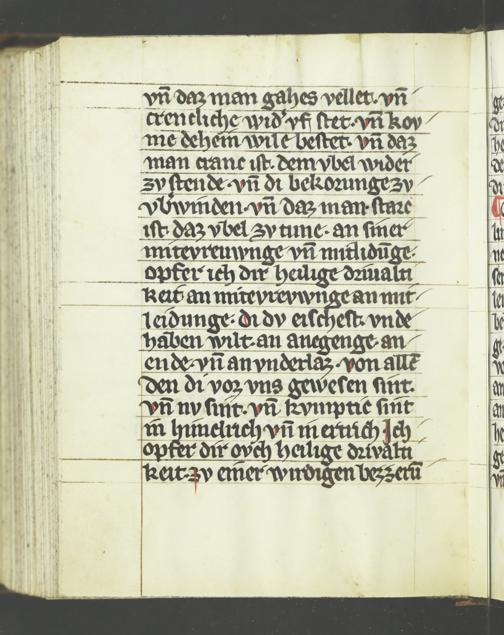 vn̄ daz man gahes vellet. vn̄
creneliche wid' vf stet. vn̄ kov
me dehein wile bestet. vn̄ daz
man cranc ist. dem vbel wider
zv stende. vn̄ di bekorunge zv
vb'winden. vn̄ daz man starc
ist daz vbel zv tune. an siner
mitevrevwnge vn̄ mitlidūge.
opfer ich dir heilige driualti
keit an mitevrevwnge an mit
leidunge. di dv eischest. vnde
haben wilt. an anegenge. an
ende. vn̄ an vnderlaz. von allē
den di vor vns gewesen sint.
vn̄ nv sint. vn̄ kvmptic sint
in himelrich vn̄ in ertrich Ich
opfer dir ovch heilige drivalti
keit. zv einer wirdigen bezzerū